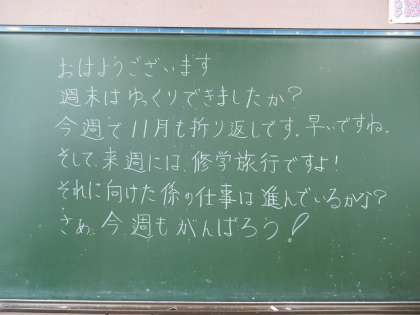 おはようございます
週末はゆっくりできましたか?
今週で11月も折り返しです。早いですね。
そして、来週には、修学旅行ですよ!
それに向けた係の仕事は進んでいるかな?
さぁ、今週もがんばろう!